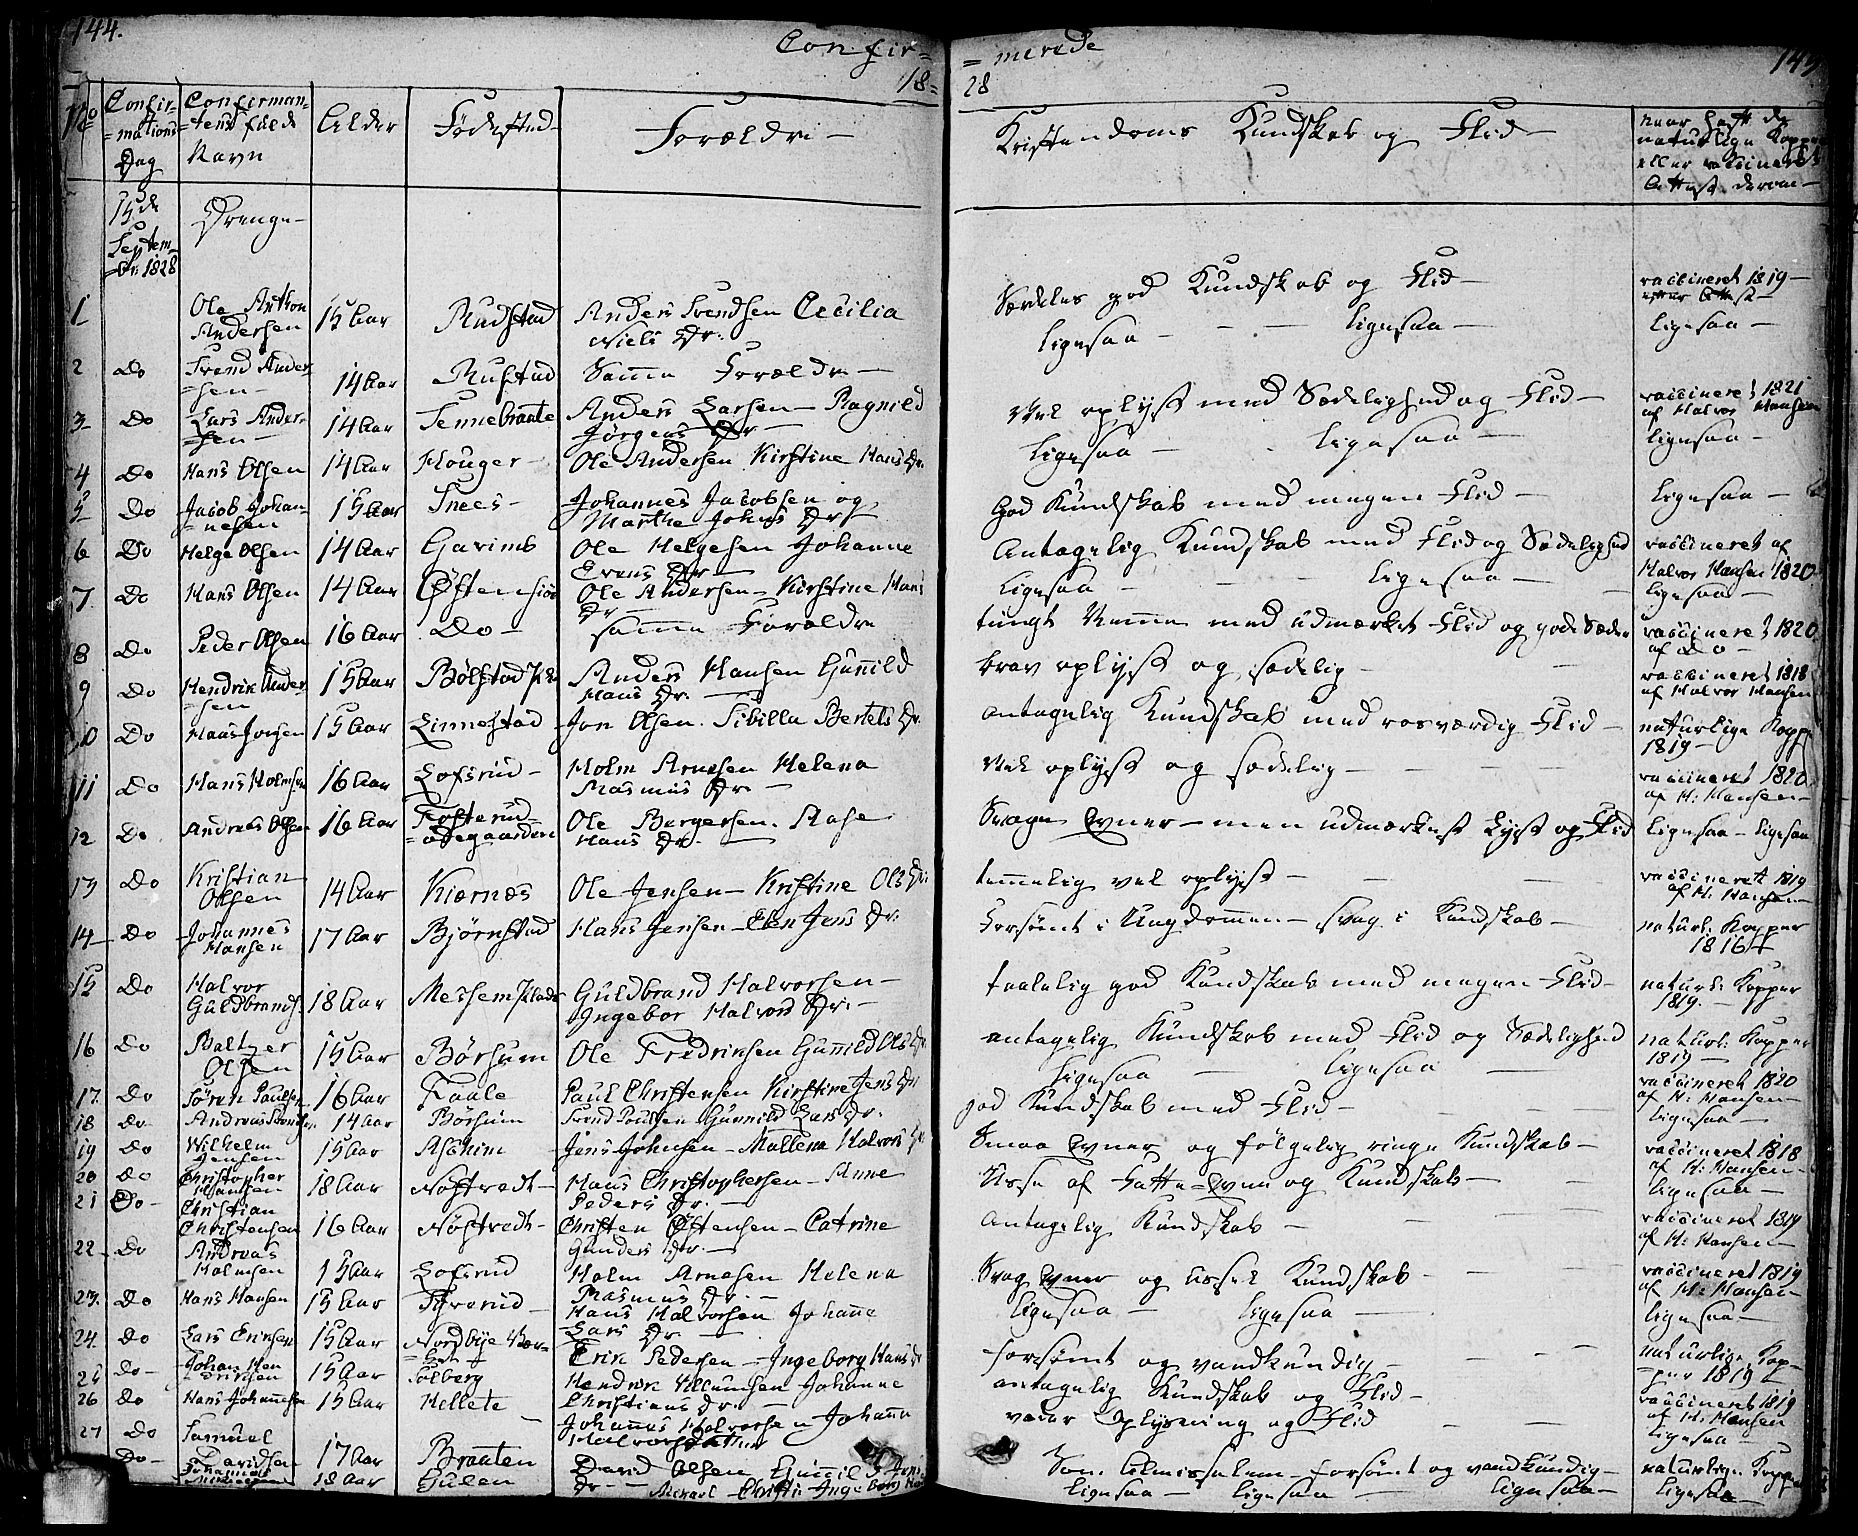 144.
Confir=
18=
No
Confir=
=mations
Dag
Confirman=
=tens fulde
Navn
Alder
Fødestæd
Forældre
15de
Septem=
br: 1828
Drenge
1 Ole Anthon Andersen 15 Aar Rudstad Anders Svendsen Cecilia
Niels Dr.
2 Do Svend Ander=
=sen 14 Aar Rustad Samme Forældre
3 Do Lars Ander=
=sen 14 Aar Tennebraate Anders Larsen Ragnild
Jørgens Dr
4 Do Hans Olsen 14 Aar Houger Ole Andersen Kirstine Hans Dr.
5 Do Jacob Johan=
=nesen 15 Aar Snees Johannes Jacobsen og
Marthe Johns Dr
6 Do Helge Olsen 14 Aar Ole Helgesen Johanne
Evens Dr
7 Do Hans Olsen 14 Aar Østensiøe Ole Andersen Kirstine Hans
Dr
8 Do Peder Olsen 16 Aar Do samme Forældre
9 Do Hendrik Ander=
=sen 15 Aar Bølstad Anders Hansen Gunild
Hans Dr.
10 Do Hans Jonsen 15 Aar Linnestad Jon Olsen Sibilla Bertels Dr.
11 Do Hans Holmsen 16 Aar Lofsrud Holm Arnesen Helena
Rasmus Dr.
12 Do Andreas Olsen 16 Aar Fosterud=
=ødegaarden Ole Borgersen Aase
Hans Dr.
13 Do Kristian
Olsen 14 Aar Kiernæs Ole Jensen Kirstine Ols Dr:
14 Do Johannes
Hansen 17 Aar Bjørnstad Hans Jensen Elen Jens Dr:
15 Do Halvor
Guldbrands. 18 Aar Messem Guldbrand Halvorsen
Ingebor Halvors Dr:
16 Do Baltzer
Olsen 15 Aar Børsum Ole Fredriksen Gunild Ols Dr
17 Do Søren Paulsen 16 Aar Faale Paul Christensen Kirstine Jens Dr
18 Do Andreas Svends. 14 Aar Børsum Svend Poulsen Gunnild Lars Dr.
19 Do Wilhelm
Jensen 15 Aar Aschim Jens Johnsen Mallena Halvors Dr
20 Do Christopher
Hansen 18 Aar Nøstvedt Hans Christophersen Anne
Peders Dr.
21 Do Christian
Christensen 16 Aar Nøstvedt Christen Østensen Catrine
Gunders Dr.
22 Do Andreas
Holmsen 15 Aar Lofsrud Holm Arnesen Helena
Rasmus Dr.
23. Do Hans Hansen 15 Aar Hans Halvorsen Johanne
Lars Dr
24. Do Lars Eriksen 15 Aar Nordbye Erik Pedersen Ingeborg Hans Dr
25 Do Johan Hen
driksen 15 Aar Solberg Hendrik Johanne
Christians Dr.
26 Do Hans Johannesen 15 Aar Hellete Johannes Halvorsen Johanna
Halvorsdatter
27 Do Samuel
Davidsen 17 Aar Braaten David Olsen Gunnild
Dr
Do 18 Aar Gulen Michael Ingeborg
=merede
28
145
Kristendoms Kundskab og Flid
naar haft de
naturlige Kopper
eller vaccineret
Attest derom
Særdeles god Kundskab og Flid vaccineret 1819
efter Attest
ligesaa ligesaa ligesaa
Vel oplyst med Sædelighed og Flid vaccineret 1821
af Halvor Hansen
ligesaa ligesaa ligesaa
God Kundskab med megen Flid ligesaa
Antagelig Kundskab med Flid og Sædelighed vaccineret af
Halvor Hansen 1820
ligesaa ligesaa ligesaa
tungt Nemme med udmærket Flid og gode Sæder vaccineret 1820
af Do
brav oplyst og sædelig vaccineret 1818
af Halvor Hansen
antagelig Kundskab med rosværdig Flid naturlige Kopper
1819
Vel oplyst og sædelig vaccineret 1820
af H: Hansen
Svage Evner men udmærket Lyst og Flid ligesaa ligesaa
temmelig vel oplyst vaccineret 1819
af H. Hansen
Forsømt i Ungdommen svag i Kundskab naturl: Kopper
1816
taalelig god Kundskab med megen Flid naturl: Kopper
1819.
antagelig Kundskab med Flid og Sædelighed naturl: Kopper
1819
ligesaa ligesaa vaccineret 1820
af H: Hansen
god Kundskab med Flid ligesaa
Smaa Evner og følgelig ringe Kundskab vaccineret 1818
af H: Hansen
Usse af Fatte=Evne og Kundskab ligesaa
Antagelig Kundskab vaccineret 1819
af H: Hansen
Svag Evner og ussel Kundskab vaccineret 1819
af H: Hansen
ligesaa ligesaa ligesaa
forsømt og vandkundig naturlige Kop=
=per 1819
antagelig Kundskab og Flid vaccineret 1819
af H: Hansen
Oplysning og Flid ligesaa
Som forsømt og vandkundig naturlige Kopper
ligesaa ligesaa ligesaa ligesaa